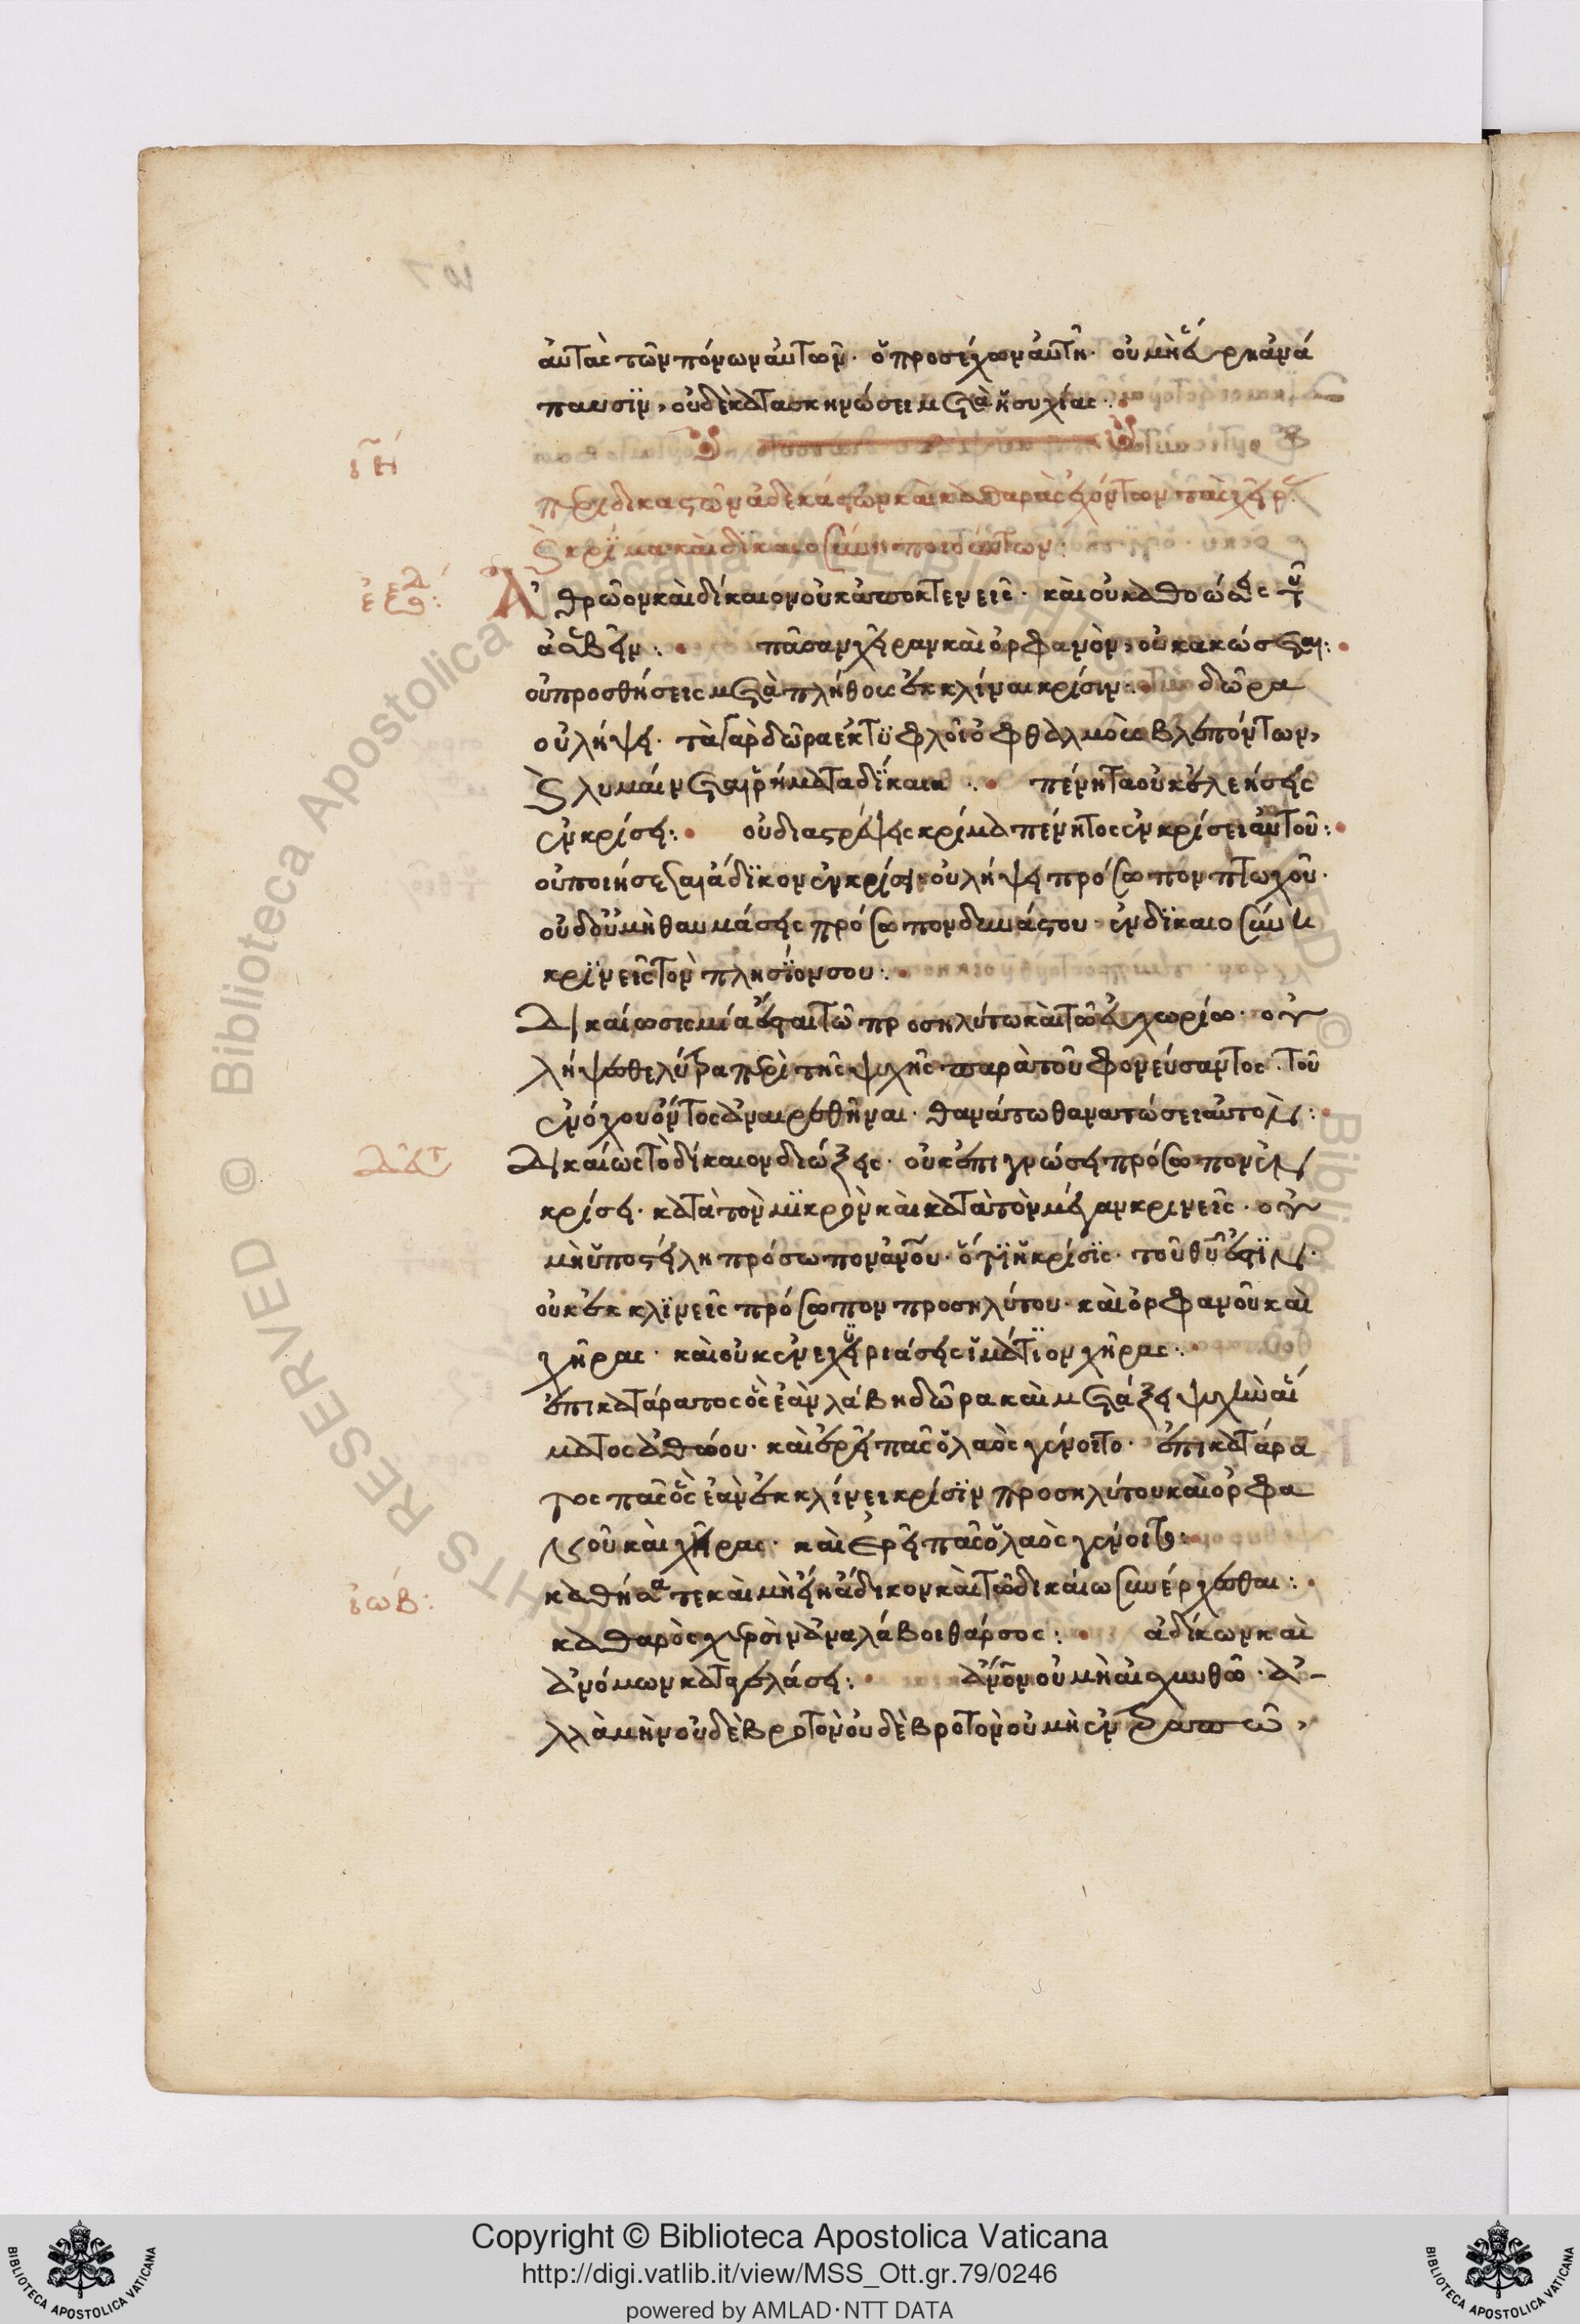 αὐτὰς τῶν πόνων αὐτῶν· ὁ προσέχων αὐτῇ· οὐ μὴ εὕρῃ ἀνά
παυσιν, οὐδὲ κατασκηνώσει μεθ' ἡσυχίας:
ιη
περὶ δικαστῶν ἀδεκάστων καὶ καθαρὰς ἐχόντων τὰς χεῖρας
καὶ κρίμα καὶ δικαιοσύνην ποιούντων:
ἐξοδ:
Ἀθῶον καὶ δίκαιον οὐκ ἀποκτενεῖς· καὶ οὐκ ἀθωώσεις τὸν
ἀσεβῆν: πᾶσαν χήραν καὶ ὀρφανὸν, οὐ κακώσεται:
οὐ προσθήσεις μετὰ πλήθους ἐκκλῖναι κρίσιν: δῶρα
οὐ λήψει· τὰ γὰρ δῶρα ἐκτυφλοῖ ὀφθαλμοὺς βλεπόντων,
καὶ λυμαίνεται ῥήματα δίκαια: πένητα οὐκ ἐλεήσεις
ἐν κρίσει: οὐ διαστρέψεις κρίμα πένητος ἐν κρίσει αὐτοῦ:
οὐ ποιήσεται ἄδικον ἐν κρίσει· οὐ λήψει πρόσωπον πτωχοῦ·
οὐδ' οὐ μὴ θαυμάσεις πρόσωπον δυνάστου· ἐν δικαιοσύνη
κρινεῖς τὸν πλησίον σου:
Δικαίωσις μία ἔσται τῶ προσηλύτω καὶ τῶ ἐγχωρίω· οὐ
λήψεσθε λύτρα περὶ τῆς ψυχῆς παρὰ τοῦ φονεύσαντος· τοῦ
ἐνόχου ὄντος ἀναιρεθῆναι· θανάτω θανατώσει αὐτόν:
Δευτ
Δικαίως τὸ δίκαιον διώξεις· οὐκ ἐπιγνώσει πρόσωπον ἐν
κρίσει· κατὰ τὸν μικρὸν καὶ κατὰ τὸν μέγαν κρινεῖς· οὐ
μὴ ὑποστείλη πρόσωπον ἀνου· ὅτι ἡ κρίσις· τοῦ θυ ἐστιν·
οὐκ ἐκκλινεῖς πρόσωπον προσηλύτου· καὶ ὀρφανοῦ καὶ
χήρας· καὶ οὐκ ἐνεχυριάσεις ἱμάτιον χήρας:
ἐπικατάρατος ὃς ἐὰν λάβη δῶρα καὶ πατάξει ψυχὴν αἵ
ματος ἀθώου· καὶ ἐρεῖ πᾶς ὁ λαὸς γένοιτο· ἐπικατάρα
τος πᾶς ὃς ἐὰν ἐκκλίνει κρίσιν προσηλύτου καὶ ὀρφα
νοῦ καὶ χήρας· καὶ ἐρεῖ πᾶς ὁ λαὸς γένοιτο:
ἰώβ:
καθήσατε καὶ μὴ εἴη ἄδικον καὶ τῶ δικαίω συνέρχεσθαι:
καθαρὸς χερσὶν ἀναλάβοι θάρσος: ἀδίκων καὶ
ἀνόμων καταγελάσει: ἄνον οὐ μὴ αἰσχυνθῶ· ἀ
λλὰ μὴν οὐδὲ βροτὸν οὐδὲ βροτὸν οὐ μὴ ἐντραπῶ,
Copyright © Biblioteca Apostolica Vaticana
http://digi.vatlib.it/view/MSS_Ott.gr.79/0246
powered by AMLAD·NTT DATA